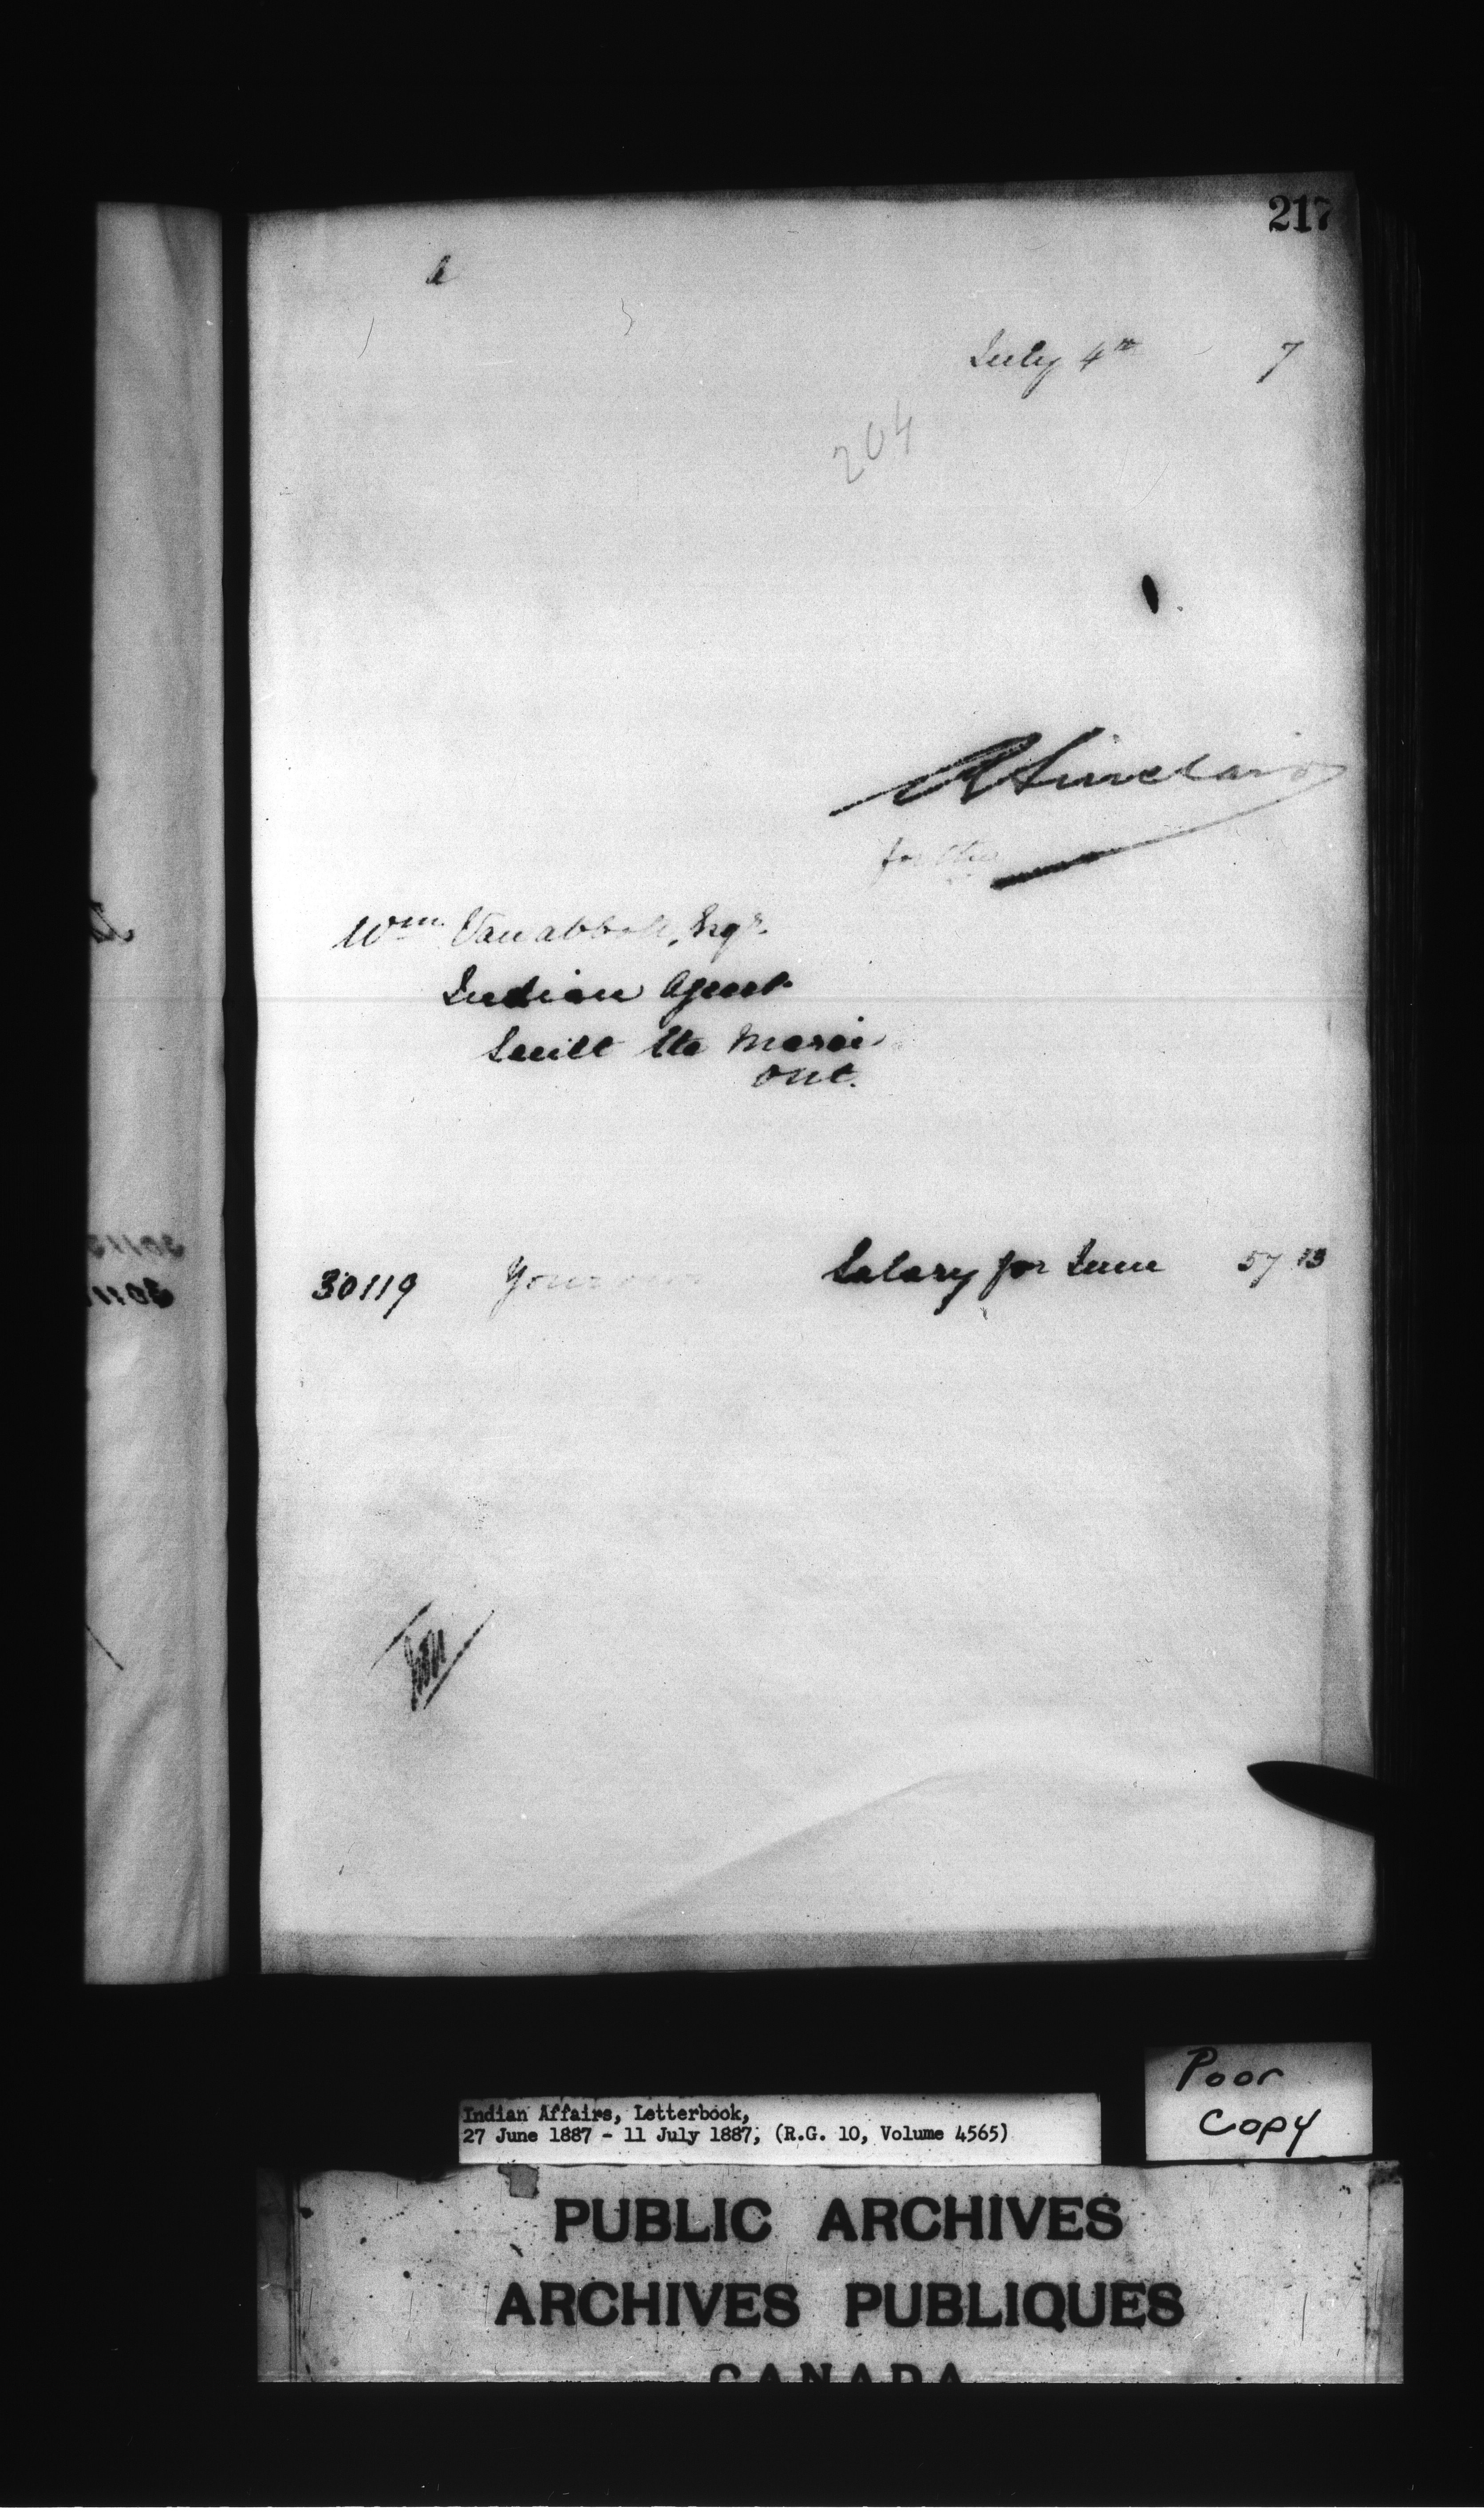 217
July 4th 7
204
R Sinclair
for the
Wm Van abbott, Esqr.
Indian Agent
Sault Ste Marie
Ont.
30119 Your own Salary for June 57 13
Poor
Copy
Indian Affairs, Letterbook,
27 June 1887 - 11 July 1887, (R.G. 10, Volume 4565)
PUBLIC ARCHIVES
ARCHIVES PUBLIQUES
CANADA